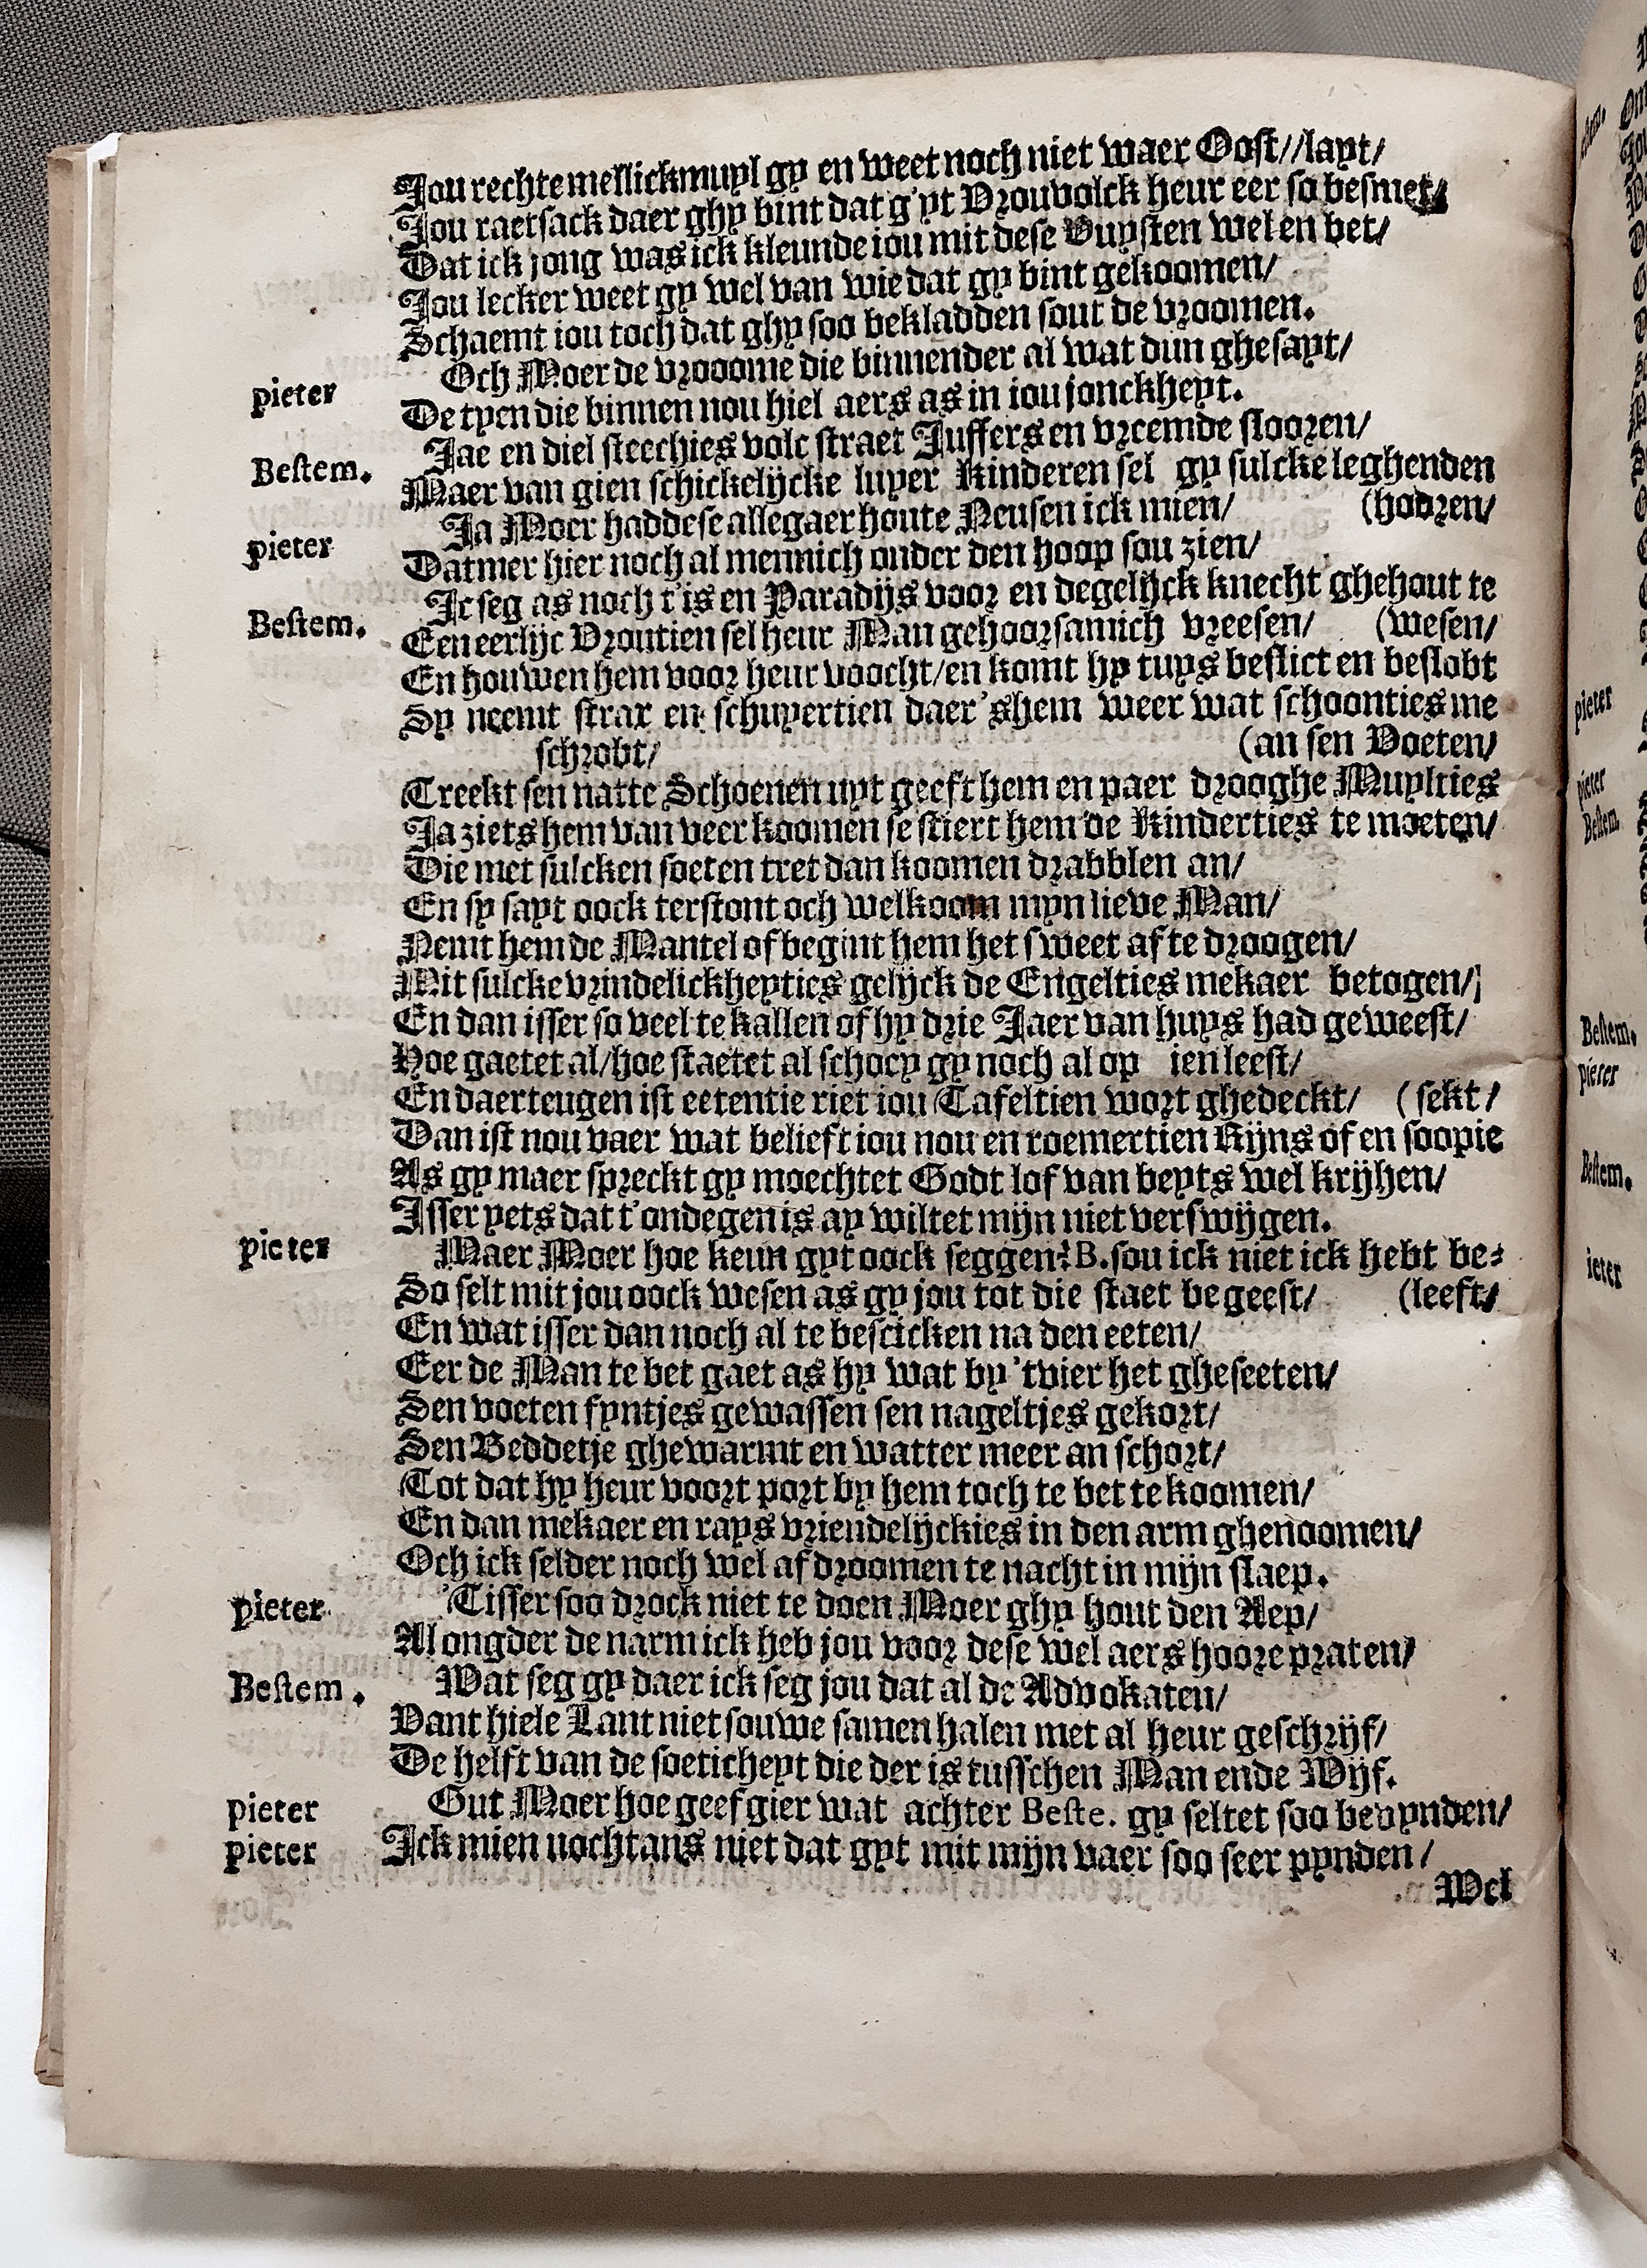 Jou rechte mellickmuyl gy en weet noch niet waer Oost//layt/
Jou raetsack daer ghy bint dat g'yt Vrouvolck heur eer so besmet/
Dat ick jong was ick kleunde iou mit dese Vuysten wel en bet/
Jou lecker weet gy wel van wie dat gy bint gekoomen/
Schaemt iou toch dat ghy soo bekladden sout de vroomen.
pieter Och Moer de vrooome die binnender al wat dun ghesayt/
De tyen die binnen nou hiel aers as in iou jonckheyt.
Bestem. Jae en diel steechies volc straet Juffers en vreemde slooren/
Maer van gien schickelijcke luyer Kinderen sel gy sulcke leghenden
pieter Ja Moer hadde se allegaer houte Neusen ick mien/ (hooren/
Datmer hier noch al mennich onder den hoop sou zien/
Bestem. Ic seg as noch t'is en Paradijs voor en degelijck knecht ghehout te
Een eerlijc Vroutien sel heur Man gehoorsamich vreesen/ (wesen/
En houwen hem voor heur voocht/en komt hy tuys beslict en beslobt
Sy neemt strax en schuyertien daer'shem weer wat schoonties me
schrobt/ (an sen Voeten/
Treekt sen natte Schoenen uyt geeft hem en paer drooghe Muylties
Ja ziets hem van veer koomen se stiert hem de Kinderties te moeten/
Die met sulcken soeten tret dan koomen drabblen an/
En sy sayt oock terstont och welkoom myn lieve Man/
Nemt hem de Mantel of begint hem het sweet af te droogen/
Mit sulcke vrindelickheyties gelijck de Engelties mekaer betogen/
En dan isser so veel te kallen of hy drie Jaer van huys had geweest/
Hoe gaetet al/hoe staetet al schory gy noch al op ien leest/
En daerteugen ist eetentie riet iou Tafeltien wort ghedeckt/ (sekt/
Dan ist nou vaer wat belieft iou nou en roemertien Rijns of en soopie
As gy maer spreckt gy moechtet Godt lof van beyts wel krijhen/
Isser yets dat t'ondegen is ay wiltet mijn niet verswijgen.
pieter Maer Moer hoe keun gyt oock seggen? B. sou ick niet ick hebt be-
So selt mit jou oock wesen as gy jou tot die staet begeeft/ (leeft/
En wat isser dan noch al te bescicken na den eeten/
Eer de Man te bet gaet as hy wat by 'tvier het gheseeten/
Sen voeten fyntjes gewassen sen nageltjes gekort/
Sen Beddetje ghewarmt en watter meer an schort/
Tot dat hy heur voort port by hem toch te bet te koomen/
En dan mekaer en rays vriendelijckies in den arm ghenoomen/
Och ick selder noch wel af droomen te nacht in mijn slaep.
pieter 'Tisser soo drock niet te doen Moer ghy hout den Aep/
Al ongder de narm ick heb jou voor dese wel aers hoore praten/
Bestem. Wat seg gy daer ick seg jou dat al de Advokaten/
Vant hiele Lant niet souwe samen halen met al heur geschrijf/
De helft van de soeticheyt die der is tusschen Man ende Wijf.
pieter Gut Moer hoe geef gier wat achter Beste. gy seltet soo bevynden/
pieter Ick mien nochtans niet dat gyt mit mijn vaer soo seer pynden/
Wel